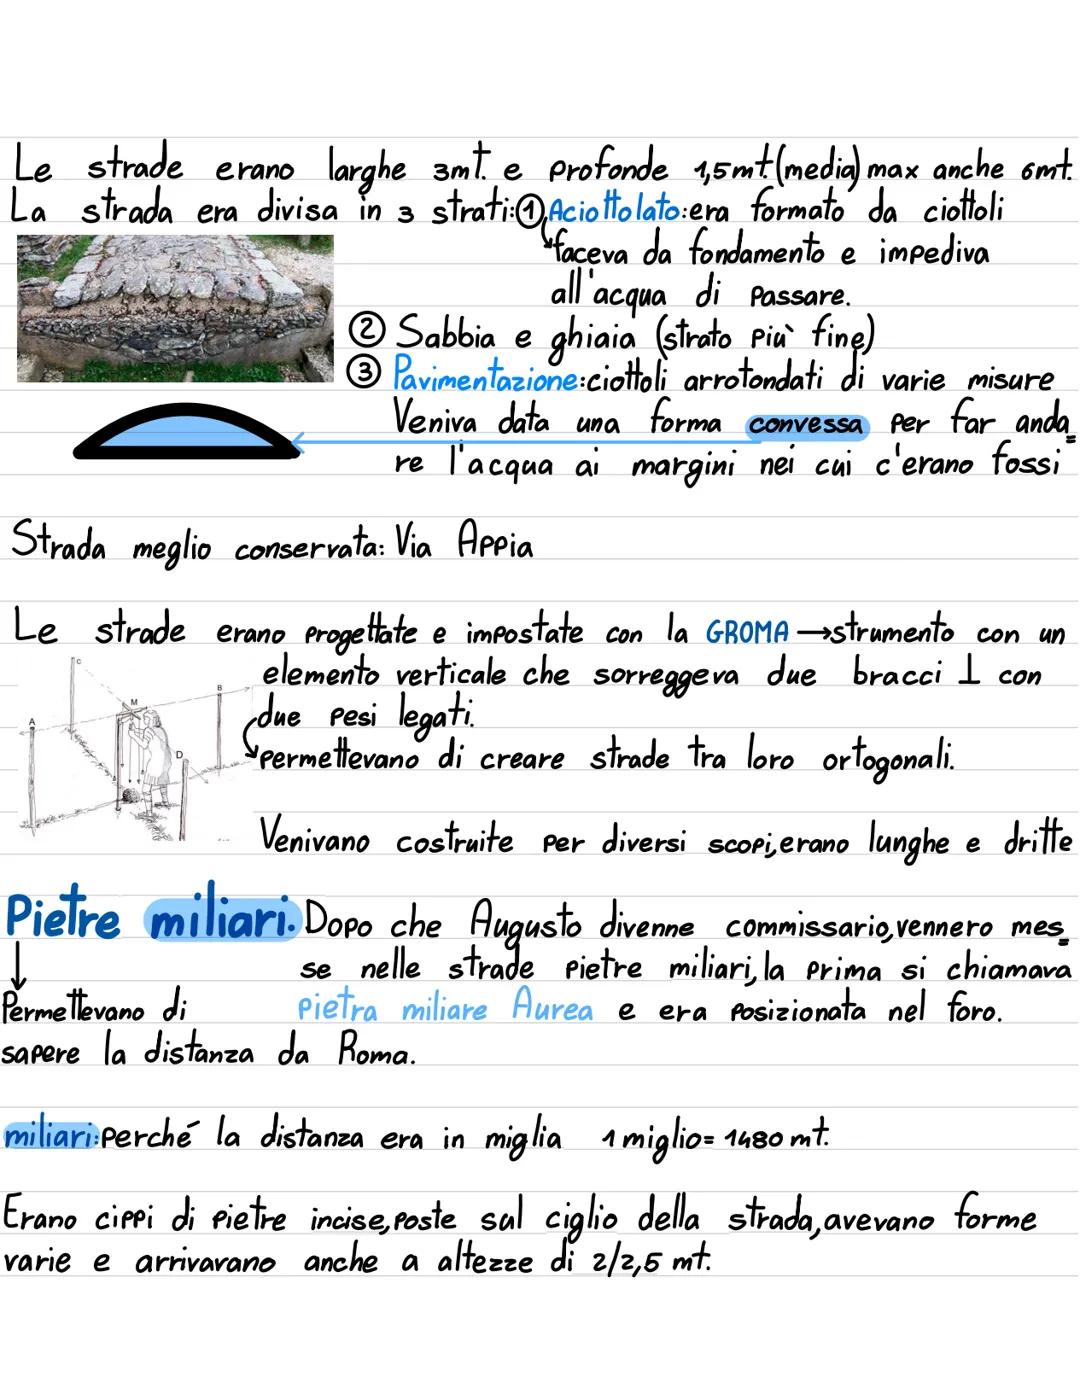 Le strade erano larghe 3mt. e profonde 1,5mt.(media) max anche 6mt.
La strada era divisa in 3 strati:① Aciottolato:era formato da ciottoli
faceva da fondamento e impediva
all'acqua di passare.
② Sabbia e ghiaia (strato più fine)
③ Pavimentazione:ciottoli arrotondati di varie misure
Veniva data una forma convessa per far anda=
re l'acqua ai margini nei cui c'erano fossi
Strada meglio conservata: Via Appia
Le strade erano progettate e impostate con la GROMA →strumento con un
elemento verticale che sorreggeva due bracci ⊥ con
due pesi legati.
permettevano di creare strade tra loro ortogonali.
C
B
M
A
D
Venivano costruite per diversi scopi,erano lunghe e dritte
Pietre miliari. Dopo che Augusto divenne commissario,vennero mes=
se nelle strade pietre miliari,la prima si chiamava
Permettevano di pietra miliare Aurea e era posizionata nel foro.
sapere la distanza da Roma.
miliari:perché la distanza era in miglia 1 miglio= 1480 mt.
Erano cippi di pietre incise,poste sul ciglio della strada,avevano forme
varie e arrivavano anche a altezze di 2/2,5 mt.